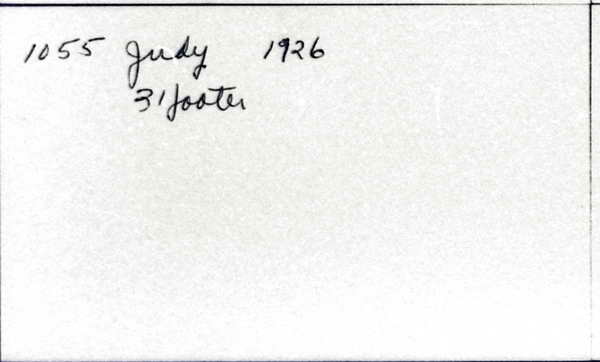 1055 Judy 1926
31footer